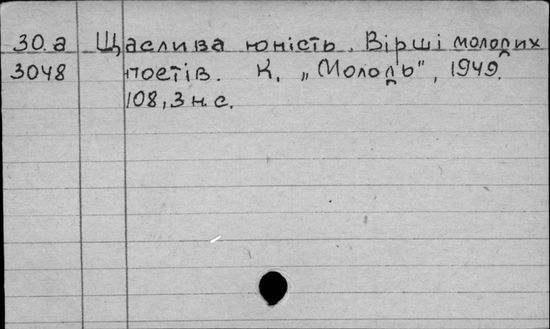 30.а Щаслива юність. Вірші молодих
3048 поетів. К. „Молодь", 1949.
108, 3 н.с.